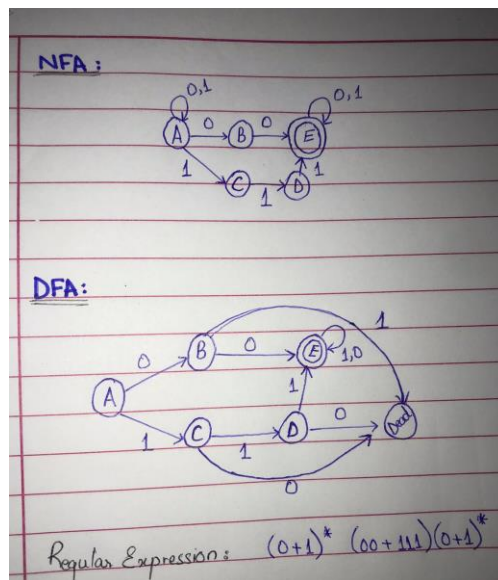 NFA:
0,1 0,1
A 0 B 0 E
1 C 1 D 1
DFA:
1
0 B 0 E 1,0
A 1
1 C 1 D 0 Dead
0
Regular Expression: (0+1)* (00+111)(0+1)*